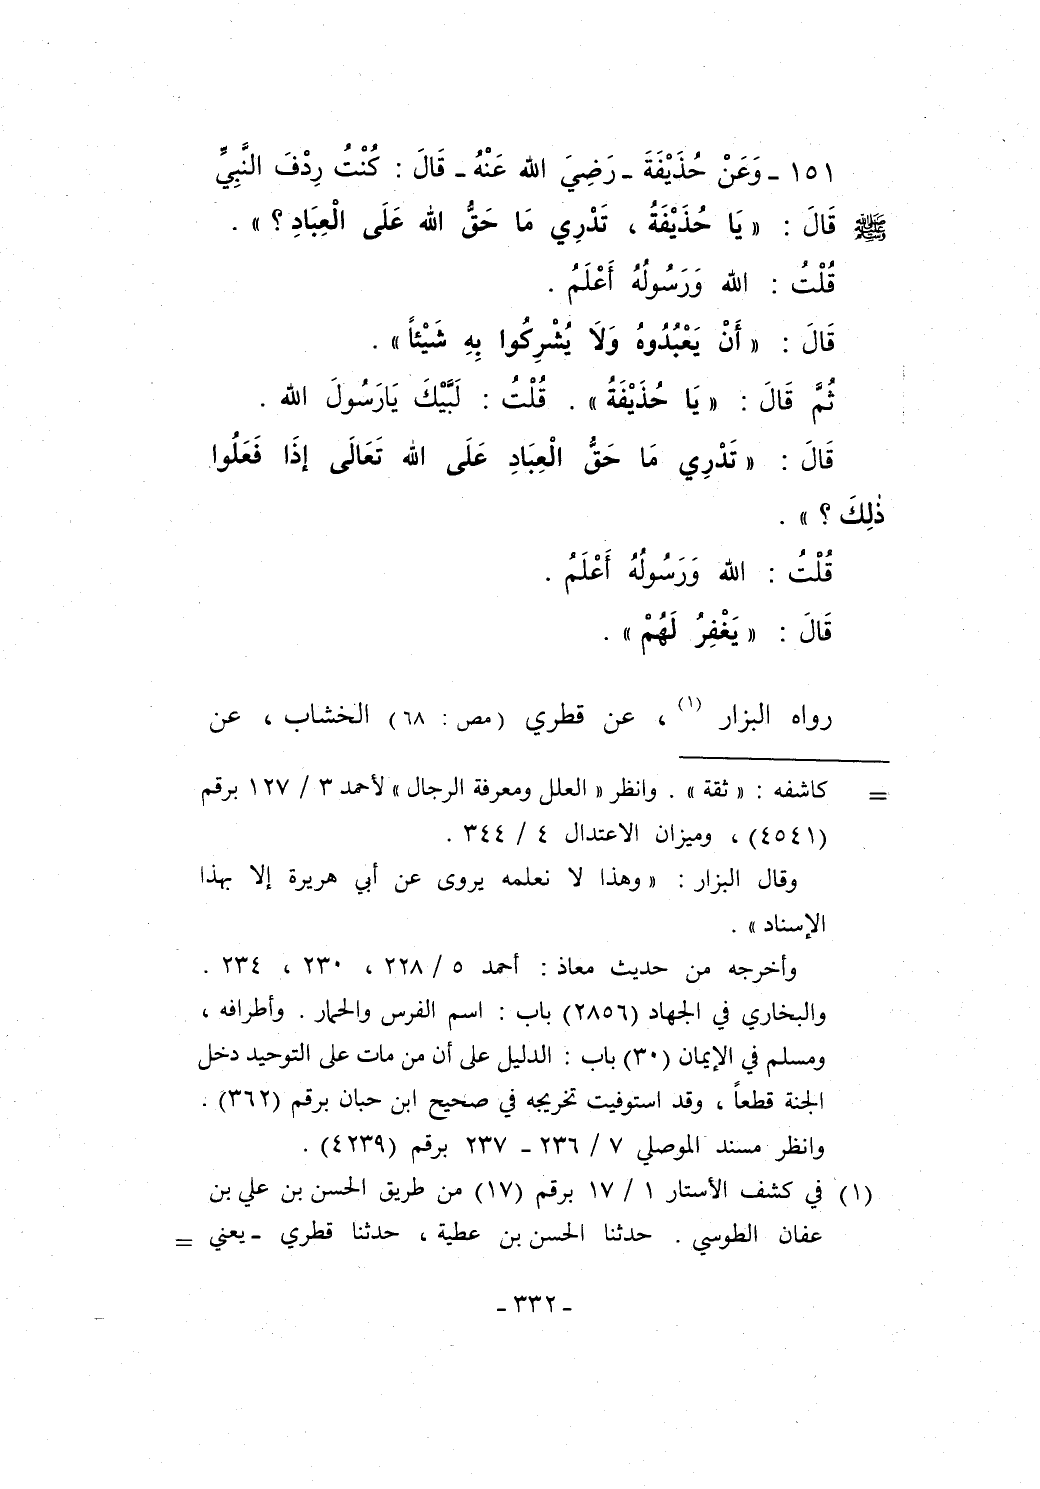 ١٥١ ـ وَعَنْ حُذَيْفَةَ ـ رَضِيَ الله عَنْهُ ـ قَالَ : كُنْتُ رِدْفَ النَّبِيِّ
ﷺ قَالَ : « يَا حُذَيْفَةُ ، تَدْرِي مَا حَقُّ الله عَلَى الْعِبَادِ ؟ » .
قُلْتُ : الله وَرَسُولُهُ أَعْلَمُ .
قَالَ : « أَنْ يَعْبُدُوهُ وَلَا يُشْرِكُوا بِهِ شَيْئاً » .
ثُمَّ قَالَ : « يَا حُذَيْفَةُ » . قُلْتُ : لَبَّيْكَ يَارَسُولَ الله .
قَالَ : « تَدْرِي مَا حَقُّ الْعِبَادِ عَلَى الله تَعَالَى إذَا فَعَلُوا
ذٰلِكَ ؟ » .
قُلْتُ : الله وَرَسُولُهُ أَعْلَمُ .
قَالَ : « يَغْفِرُ لَهُمْ » .
رواه البزار (١) ، عن قطري (مص : ٦٨) الخشاب ، عن
= كاشفه : « ثقة » . وانظر « العلل ومعرفة الرجال » لأحمد ٣ / ١٢٧ برقم
(٤٥٤١) ، وميزان الاعتدال ٤ / ٣٤٤ .
وقال البزار : « وهذا لا نعلمه يروى عن أبي هريرة إلا بهذا
الإسناد » .
وأخرجه من حديث معاذ : أحمد ٥ / ٢٢٨ ، ٢٣٠ ، ٢٣٤ .
والبخاري في الجهاد (٢٨٥٦) باب : اسم الفرس والحمار . وأطرافه ،
ومسلم في الإيمان (٣٠) باب : الدليل على أن من مات على التوحيد دخل
الجنة قطعاً ، وقد استوفيت تخريجه في صحيح ابن حبان برقم (٣٦٢) .
وانظر مسند الموصلي ٧ / ٢٣٦ ـ ٢٣٧ برقم (٤٢٣٩) .
(١) في كشف الأستار ١ / ١٧ برقم (١٧) من طريق الحسن بن علي بن
عفان الطوسي . حدثنا الحسن بن عطية ، حدثنا قطري ـ يعني =
ـ ٣٣٢ ـ